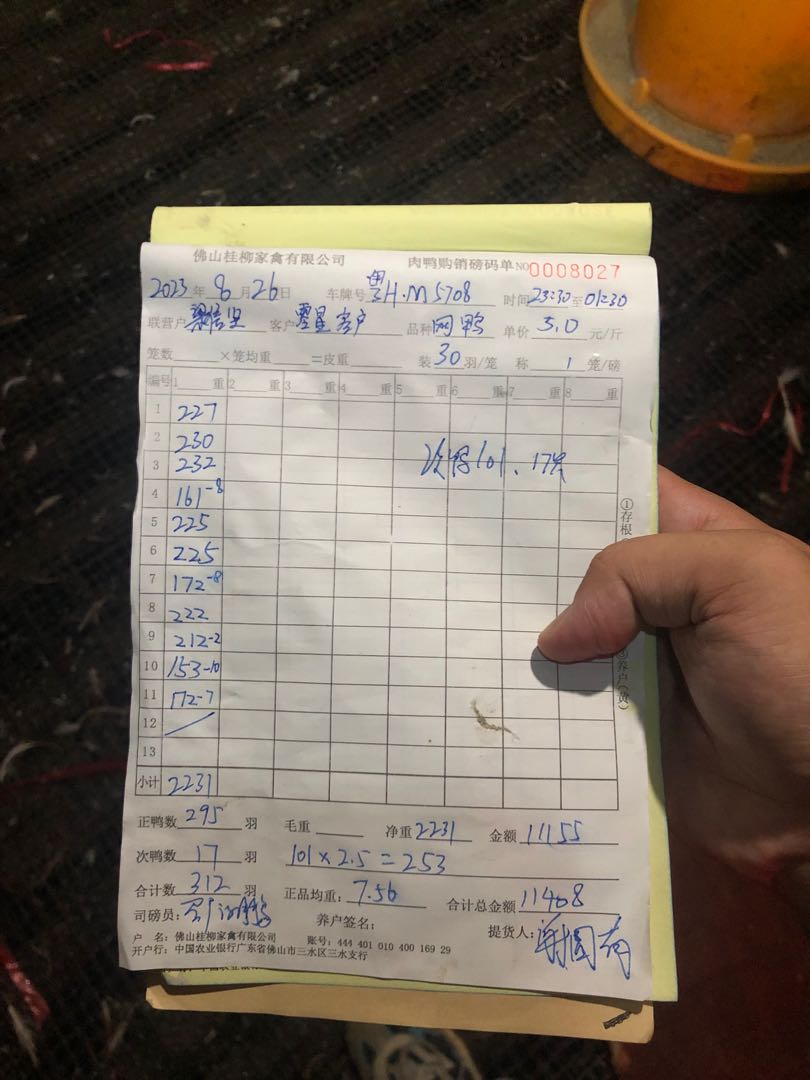 佛山桂柳家禽有限公司 肉鸭购销磅码单 NO 0008027
2023年8月26日 车牌号 粤H·M5708 时间 23:30至01:30
联营户 客户 零星客户 品种 网鸭 单价 5.0 元/斤
笼数 ×笼均重 =皮重 装30羽/笼 称 1 笼/磅
编号 1 重 2 重 3 重 4 重 5 重 6 重 7 重 8 重
1 227
2 230
3 232 次鸭101、17只
4 161-8
5 225
6 225
7 172-8
8 222
9 212-2
10 153-10
11 172-7
12
13
小计 2231
①存根
③养户(黄)
正鸭数 295 羽 毛重 净重 2231 金额 11155
次鸭数 17 羽 101×2.5=253
合计数 312 羽 正品均重: 7.56 合计总金额 11408
司磅员: 养户签名: 提货人:
户 名: 佛山桂柳家禽有限公司 账号: 444 401 010 400 169 29
开户行: 中国农业银行广东省佛山市三水区三水支行